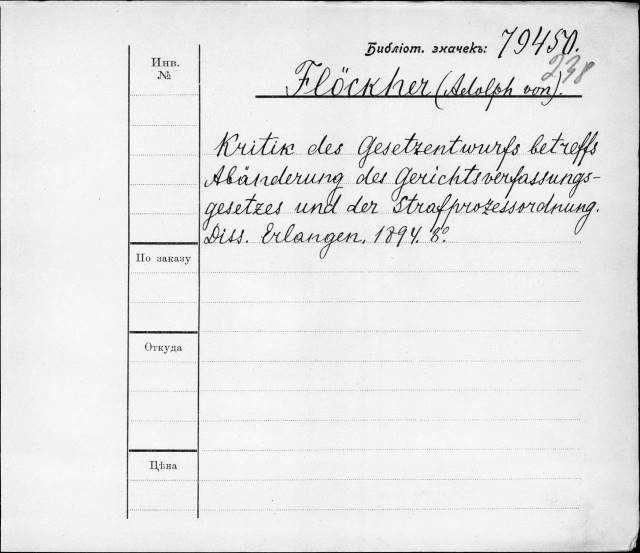 Библіот. значекъ: 79450.
238
Инв.
№
Flöckher (Adolph von).
Kritik des Gesetzentwurfs betreffs
Abänderung des Gerichtsverfassungs-
gesetzes und der Strafprozessordnung.
Diss. Erlangen, 1894. 8°.
По заказу
Откуда
Цѣна